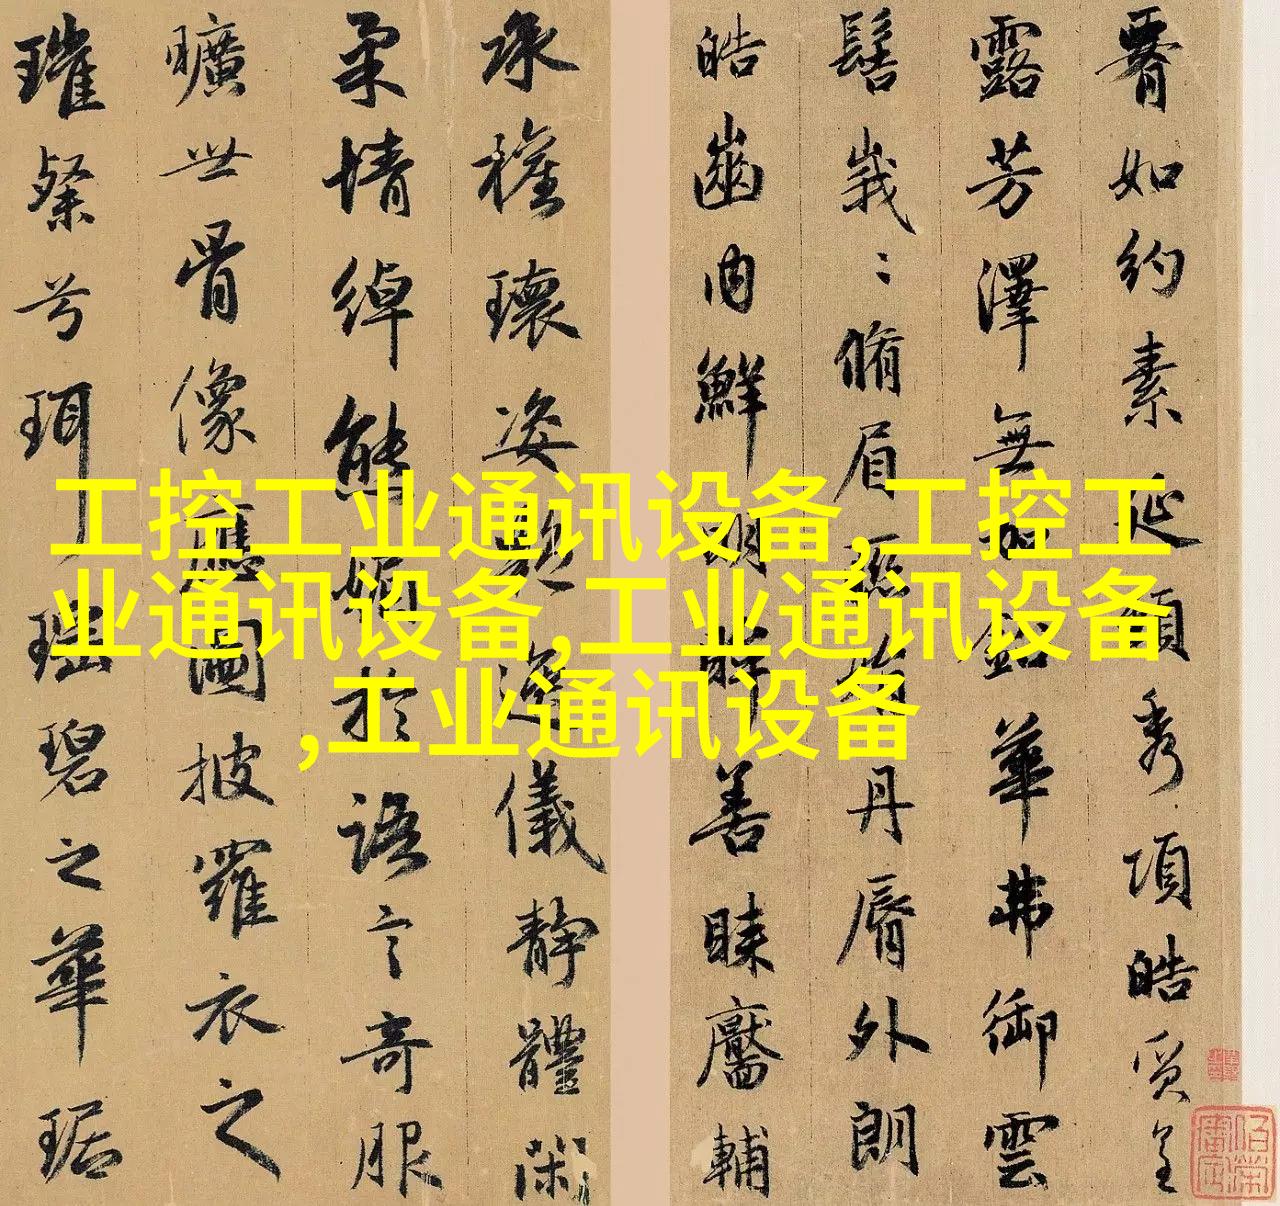 工控工业通讯设备,工控工
业通讯设备,工业通讯设备
,工业通讯设备
如約素延頸秀項皓質呈
露芳澤無加鉛華弗御雲
髻峩〻脩眉聯娟丹脣外朗
皓齒内鮮明眸善睞靨輔
承權瓌姿艷逸儀靜體閑
柔情綽態媚於語言奇服
曠世骨像應圖披羅衣之
璀粲兮珥瑶碧之華琚